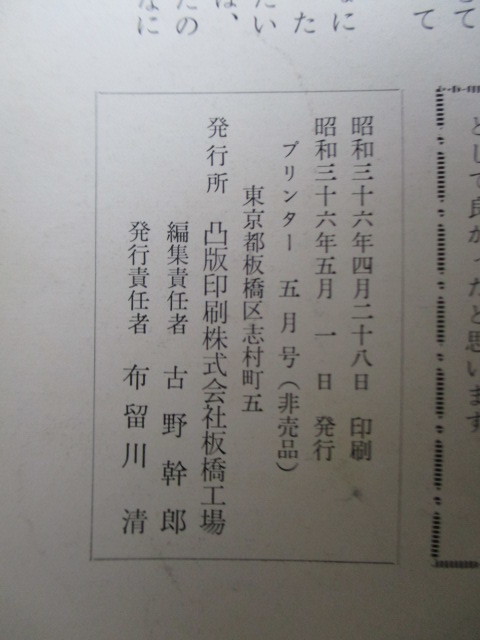 として良かったと思います
昭和三十六年四月二十八日 印刷
昭和三十六年五月 一 日 発行
プリンター 五月号(非売品)
東京都板橋区志村町五
発行所 凸版印刷株式会社板橋工場
編集責任者 古野幹郎
発行責任者 布留川 清